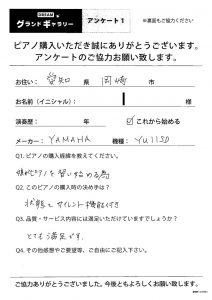 DREAM
グランドギャラリー アンケート1 ※裏面もご協力ください
ピアノ購入いただき誠にありがとうございます。
アンケートのご協力お願い致します。
お住い: 愛知 県 岡崎 市
お名前(イニシャル): 様
演奏歴: 年 ☑これから始める
メーカー: YAMAHA 機種: YU11SD
Q1. ピアノの購入経緯を教えてください。
娘がピアノを習い始める為
Q2. このピアノの購入時の決め手は?
状態とサイレント機能付き
Q3. 品質・サービス内容には満足いただけていますでしょうか?
とても満足です。
Q4. その他感想やご要望等、ご自由にご記入下さい。
ご協力ありがとうございました。今後ともよろしくお願い致します。